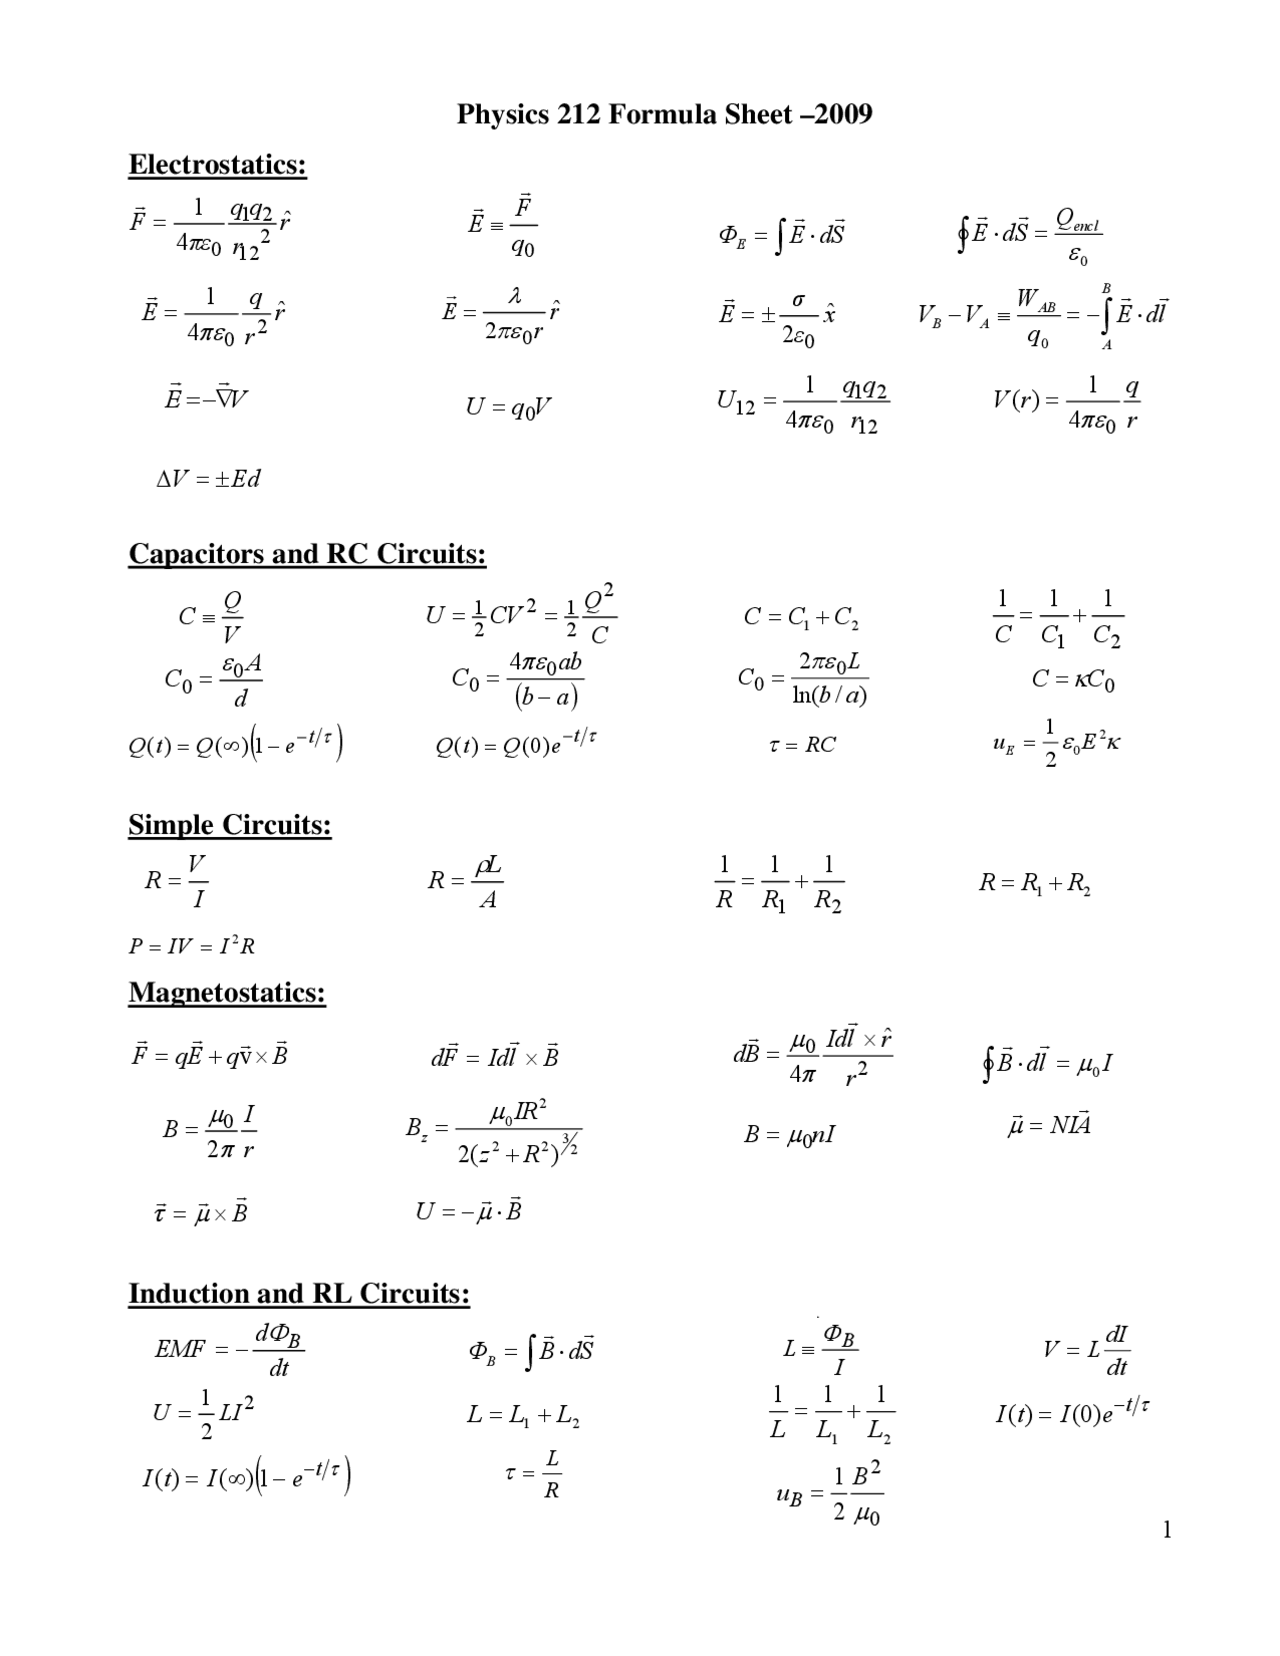 Physics 212 Formula Sheet –2009
Electrostatics:
F⃗ = 1/(4πε₀) q₁q₂/r₁₂² r̂    E⃗ ≡ F⃗/q₀    Φ_E = ∫ E⃗ · dS⃗    ∮ E⃗ · dS⃗ = Q_encl/ε₀
E⃗ = 1/(4πε₀) q/r² r̂    E⃗ = λ/(2πε₀r) r̂    E⃗ = ± σ/(2ε₀) x̂    V_B − V_A ≡ W_AB/q₀ = −∫_A^B E⃗ · dl⃗
E⃗ = −∇⃗V    U = q₀V    U₁₂ = 1/(4πε₀) q₁q₂/r₁₂    V(r) = 1/(4πε₀) q/r
ΔV = ±Ed
Capacitors and RC Circuits:
C ≡ Q/V    U = ½CV² = ½ Q²/C    C = C₁ + C₂    1/C = 1/C₁ + 1/C₂
C₀ = ε₀A/d    C₀ = 4πε₀ab/(b − a)    C₀ = 2πε₀L/ln(b/a)    C = κC₀
Q(t) = Q(∞)(1 − e^(−t/τ))    Q(t) = Q(0)e^(−t/τ)    τ = RC    u_E = 1/2 ε₀E²κ
Simple Circuits:
R = V/I    R = ρL/A    1/R = 1/R₁ + 1/R₂    R = R₁ + R₂
P = IV = I²R
Magnetostatics:
F⃗ = qE⃗ + qv⃗ × B⃗    dF⃗ = Idl⃗ × B⃗    dB⃗ = μ₀/4π Idl⃗ × r̂/r²    ∮ B⃗ · dl⃗ = μ₀I
B = μ₀/2π I/r    B_z = μ₀IR²/2(z² + R²)^(3/2)    B = μ₀nI    μ⃗ = NIA⃗
τ⃗ = μ⃗ × B⃗    U = −μ⃗ · B⃗
Induction and RL Circuits:
EMF = − dΦ_B/dt    Φ_B = ∫ B⃗ · dS⃗    L ≡ Φ_B/I    V = L dI/dt
U = 1/2 LI²    L = L₁ + L₂    1/L = 1/L₁ + 1/L₂    I(t) = I(0)e^(−t/τ)
I(t) = I(∞)(1 − e^(−t/τ))    τ = L/R    u_B = 1/2 B²/μ₀
1